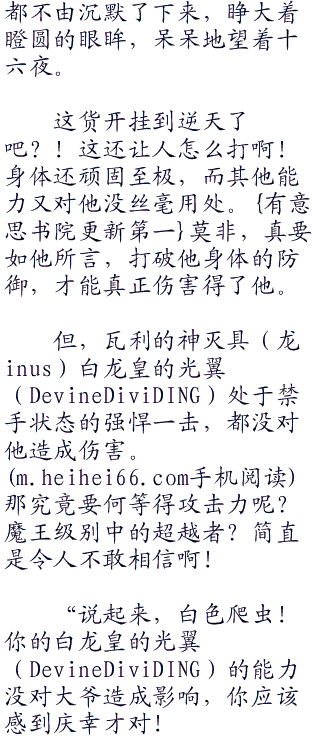 都不由沉默了下来，睁大着
瞪圆的眼眸，呆呆地望着十
六夜。
这货开挂到逆天了
吧？！这还让人怎么打啊！
身体还顽固至极，而其他能
力又对他没丝毫用处。{有意
思书院更新第一}莫非，真要
如他所言，打破他身体的防
御，才能真正伤害得了他。
但，瓦利的神灭具（龙
inus）白龙皇的光翼
（DevineDiviDING）处于禁
手状态的强悍一击，都没对
他造成伤害。
(m.heihei66.com手机阅读)
那究竟要何等得攻击力呢？
魔王级别中的超越者？简直
是令人不敢相信啊！
“说起来，白色爬虫！
你的白龙皇的光翼
（DevineDiviDING）的能力
没对大爷造成影响，你应该
感到庆幸才对！